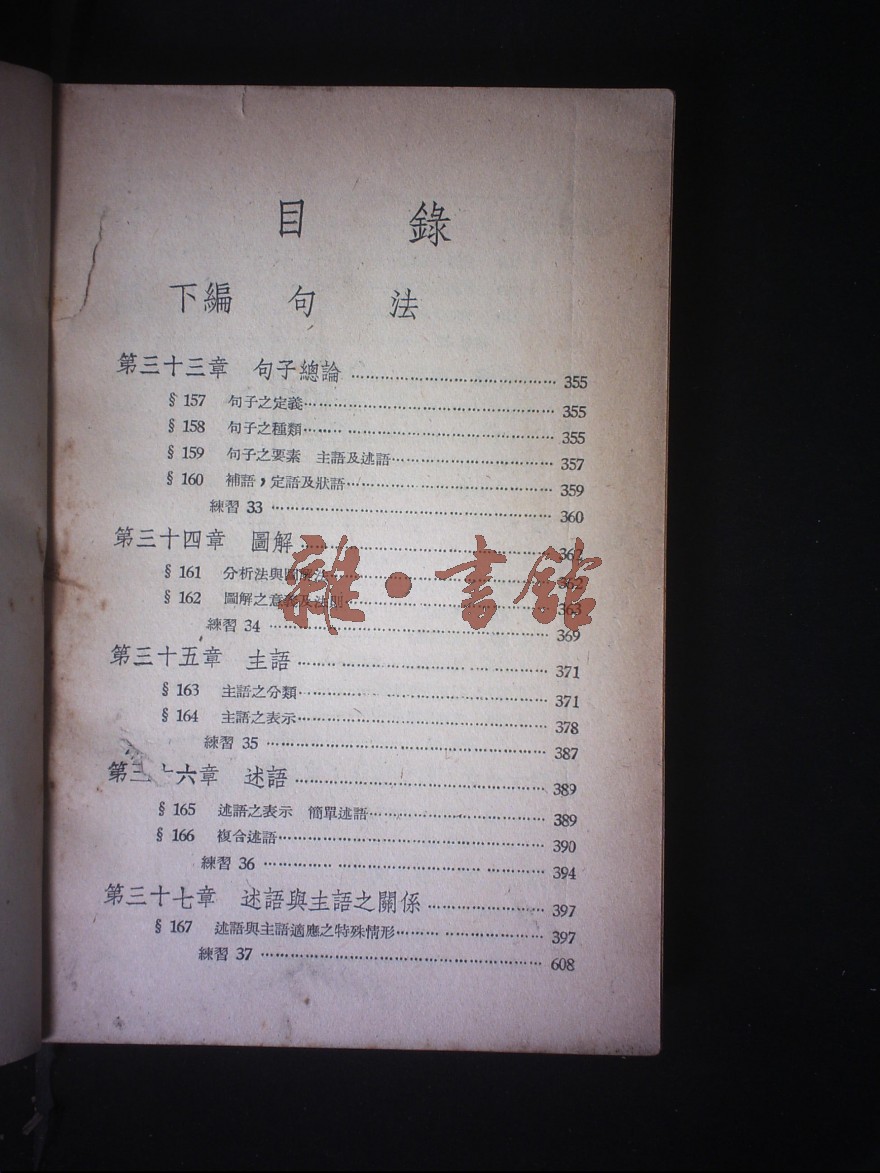 目 錄
下編 句 法
第三十三章 句子總論 …… 355
§ 157 句子之定義 …… 355
§ 158 句子之種類 …… 355
§ 159 句子之要素 主語及述語 …… 357
§ 160 補語，定語及狀語 …… 359
練習 33 …… 360
第三十四章 圖解 …… 362
§ 161 分析法與圖解法 …… 362
§ 162 圖解之意義及法則 …… 363
練習 34 …… 369
雜·書館
第三十五章 主語 …… 371
§ 163 主語之分類 …… 371
§ 164 主語之表示 …… 378
練習 35 …… 387
第三十六章 述語 …… 389
§ 165 述語之表示 簡單述語 …… 389
§ 166 複合述語 …… 390
練習 36 …… 394
第三十七章 述語與主語之關係 …… 397
§ 167 述語與主語適應之特殊情形 …… 397
練習 37 …… 608